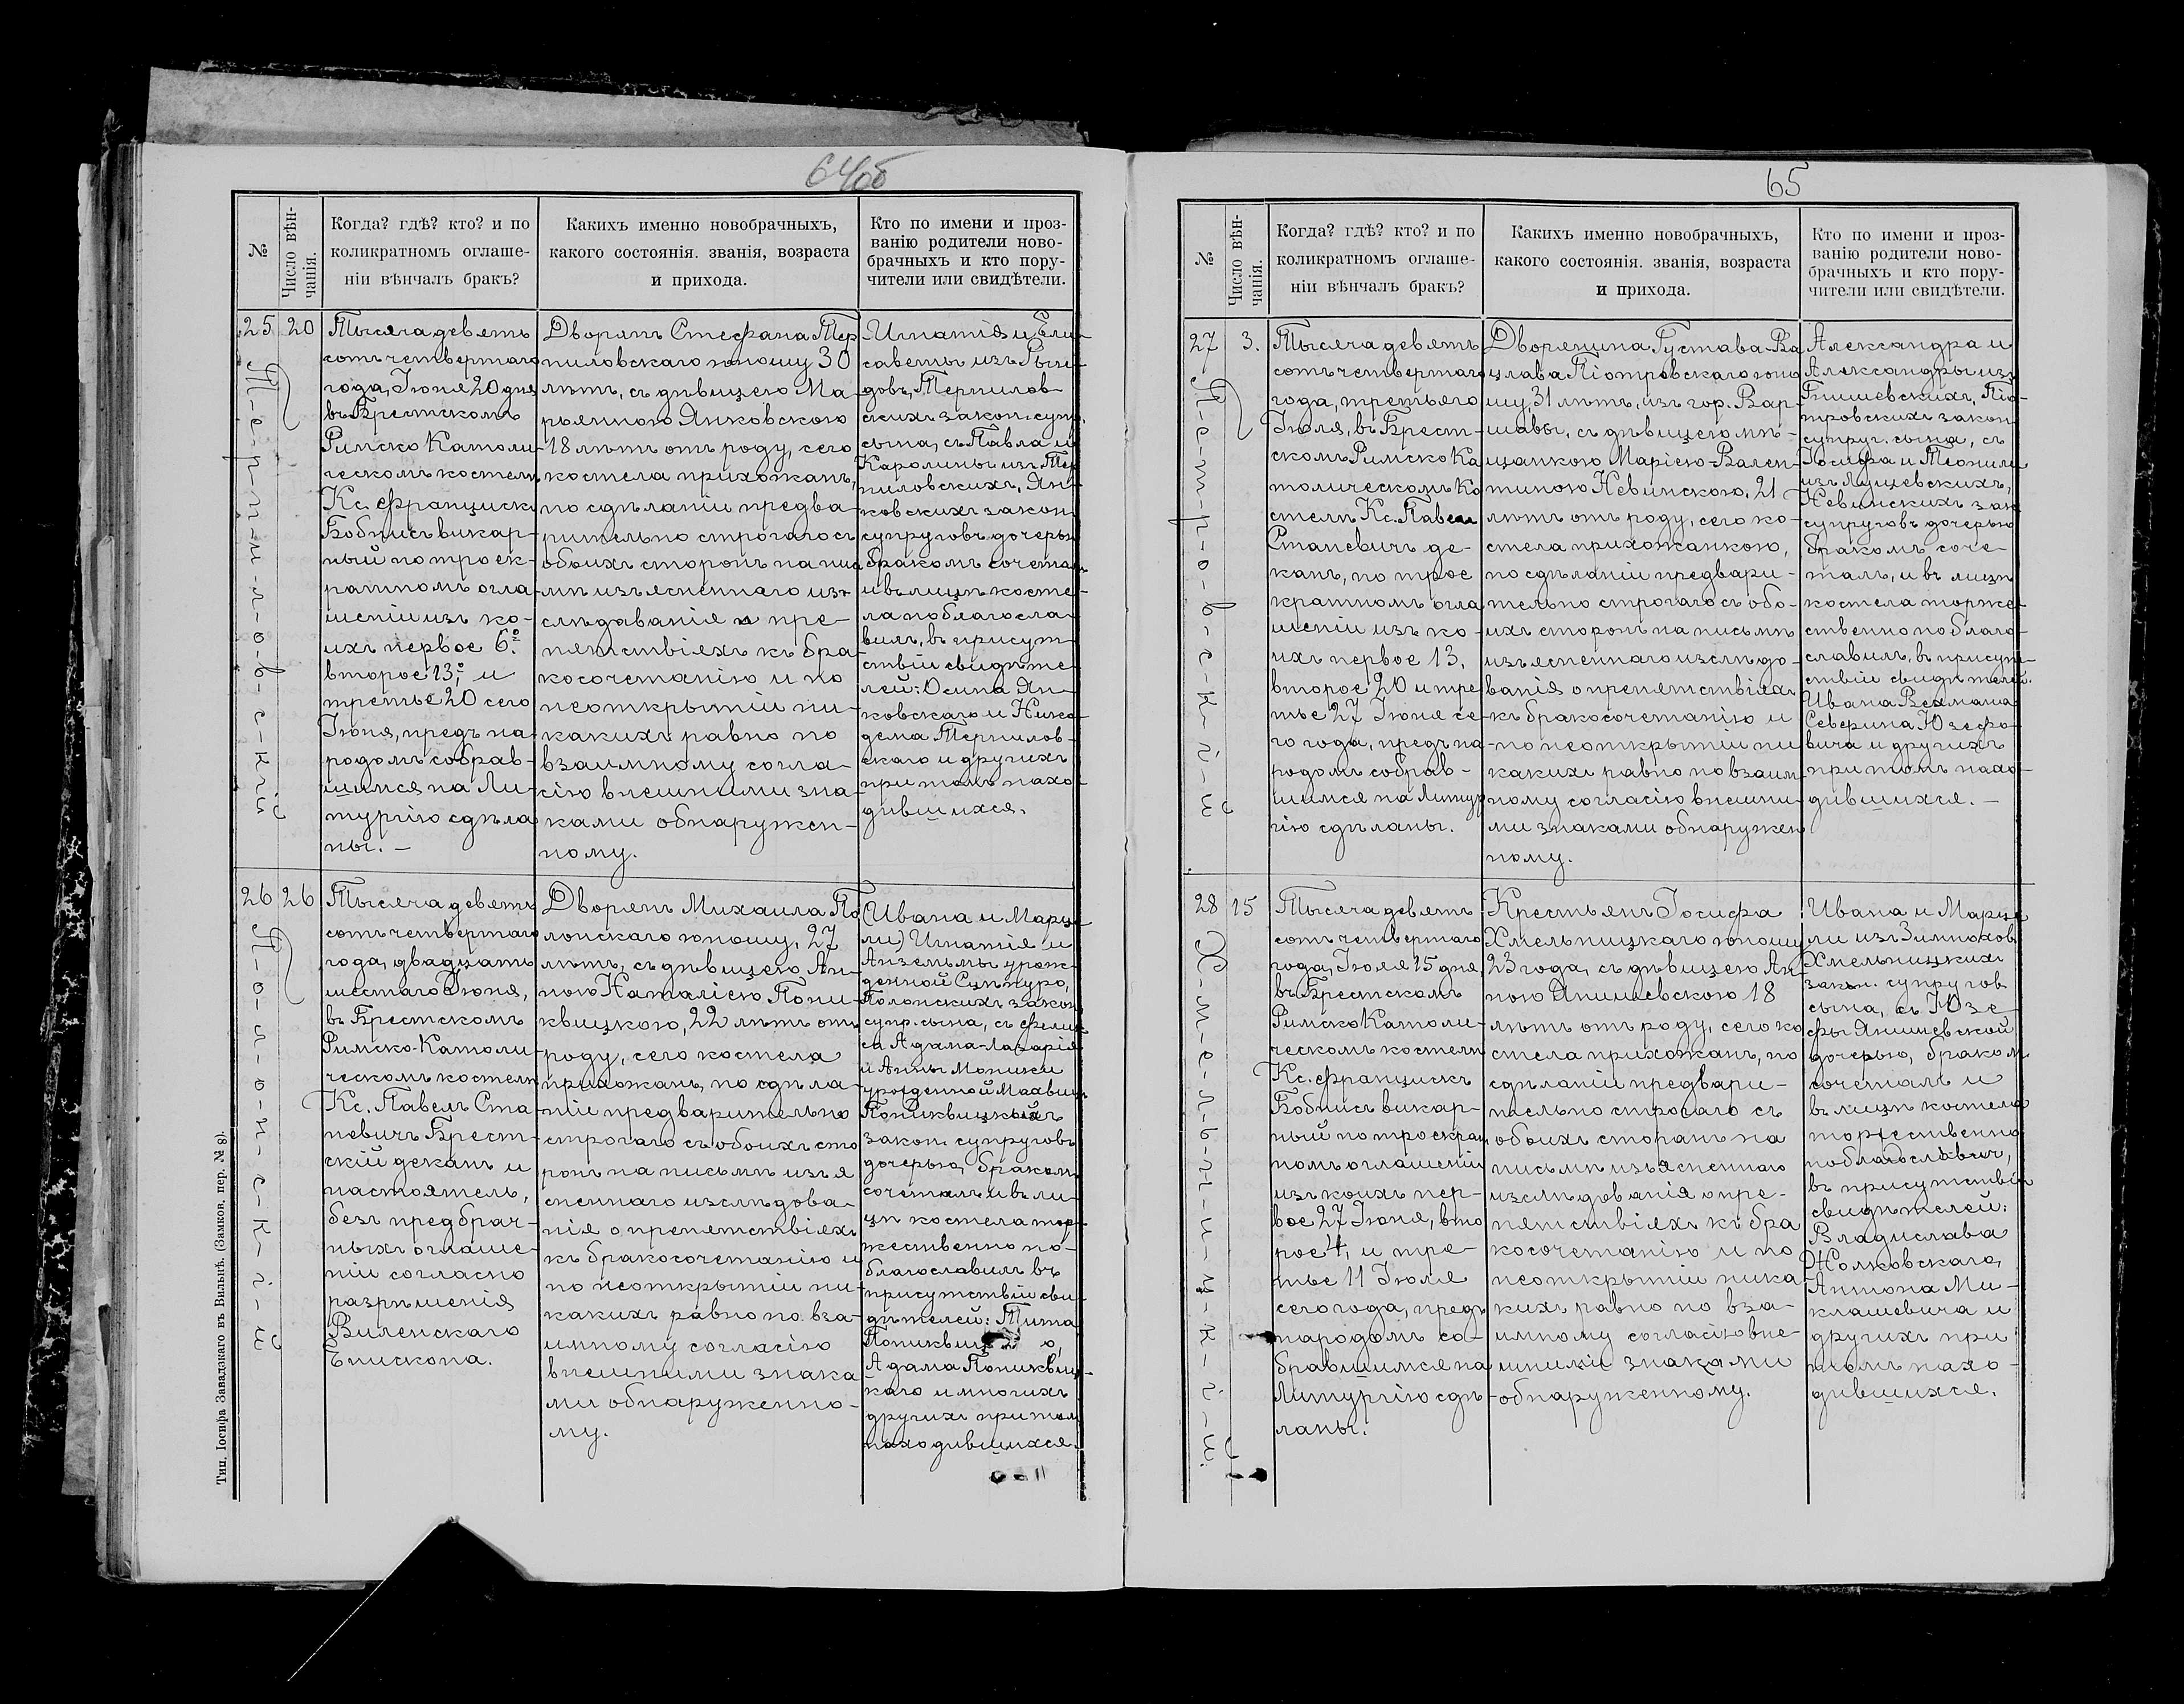 64об
№
Число вѣн-
чанія.
Когда? гдѣ? кто? и по
коликратномъ оглаше-
ніи вѣнчалъ бракъ?
Какихъ именно новобрачныхъ,
какого состоянія. званія, возраста
и прихода.
Кто по имени и проз-
ванію родители ново-
брачныхъ и кто пору-
чители или свидѣтели.
25
20
Т-е-р-п-и-л-о-в-с-к-ій
Тысяча девять
сотъ четвертаго
года, Іюня 20 дня
въ Брестскомъ
Римско Католи-
ческомъ костелѣ
Кс. Францискъ
Бобнисъ викар-
ный по троек-
ратномъ огла-
шеніи изъ ко-
ихъ первое 6.º
второе 13,º и
третье 20 сего
Іюня, предъ на-
родомъ собрав-
шимся на Ли-
тургію сдѣла
ны. —
Дворянъ Стефана Тер
пиловскаго юношу 30
лѣтъ, съ дѣвицею Ма-
рьянною Янковскою
18 лѣтъ отъ роду, сего
костела прихожанъ,
по сдѣланіи предва-
рительно строгаго съ
обоихъ сторонъ на пис
мѣ изъясненнаго из-
слѣдаванія о пре-
пятствіяхъ къ бра
косочетанію и по
неоткрытіи ни-
какихъ равно по
взаимному согла-
сію внешними зна-
ками обнаружен-
ному.
Игнатія и Ели-
саветы изъ
довъ, Терпилов-
скихъ закон. супр.
сына, съ Павла и
Каролины изъ Тер
пиловскихъ, Ян-
ковскихъ закон
супруговъ дочерью
бракомъ сочеталъ
и въ лицѣ косте-
ла поблагосла-
вилъ, въ присут-
ствіи свидѣте-
лей: Осипа Ян-
ковскаго и Нико-
дема Терпилов-
скаго и другихъ
при томъ нахо-
дившихся.
26
26
П-о-л-о-н-с-к-і-й
Тысяча девять
сотъ четвертаго
года, двадцать
шестаго Іюня,
въ Брестскомъ
Римско-Католи-
ческомъ костелѣ
Кс. Павелъ Ста
невичъ Брест-
скій деканъ и
настоятель,
безъ предбрач-
ныхъ оглаше-
ніи согласно
разрѣшенія
Виленскаго
Епископа.
Дворянъ Михаила По
лонскаго юношу, 27
лѣтъ, съ дѣвицею Ан-
ною Наталіею Пони-
квицкою, 22 лѣтъ отъ
роду, сего костела
прихожанъ, по сдѣла-
ніи предварительно
строгаго съ обоихъ сто
ронъ на письмѣ изъя
сненнаго изслѣдова-
нія о препятствіяхъ
къ бракосочетанію и
по неоткрытіи ни-
какихъ равно по вза-
имному согласію
внешними знака
ми обнаруженно-
му.
(Ивана и Марце-
ли) Игнатія и
Анзельмы урож-
денной
Полонскихъ закон
супр. сына, съ Фелик
са Адама-Лазарія
и Анны Моники
урожденной
Пониквицкихъ
закон супруговъ
дочерью, бракомъ
сочеталъ и въ ли-
цѣ костела тор-
жественно по-
благославилъ въ
присутствіи сви-
дѣтелей: Тита
Адама Пониквиц-
каго и многихъ
другихъ при томъ
находившихся.
Тип. Іосифа Завадзкаго въ Вильнѣ. (Замков. пер. № 8).
65
№
Число вѣн-
чанія.
Когда? гдѣ? кто? и по
коликратномъ оглаше-
ніи вѣнчалъ бракъ?
Какихъ именно новобрачныхъ,
какого состоянія. званія, возраста
и прихода.
Кто по имени и проз-
ванію родители ново-
брачныхъ и кто пору-
чители или свидѣтели.
27
3.
П-е-т-р-о-в-с-к-і-й
Тысяча девять
сотъ четвертаго
года, третьяго
Іюля, въ Брест-
скомъ Римско Ка
толическомъ Ко
стелѣ Кс. Павелъ
Станевичъ де-
канъ, по трое
кратномъ огла
шеніи изъ ко-
ихъ первое 13,
второе 20 и тре
тье 27 Іюня се-
го года, предъ на
родомъ собрав-
шимся на Литур
гію сдѣланы.
Дворянина Густава-Ва
цлава Піотровскаго юно
шу, 31 лѣтъ, изъ гор. Вар-
шавы, съ дѣвицею мѣ-
щанкою Маріею-Вален-
тиною Невинскою, 21
лѣтъ отъ роду, сего ко-
стела прихожанкою,
по сдѣланіи предвари-
тельно строгаго съ обо-
ихъ сторонъ на письмѣ
изъясненнаго изслѣдо-
ванія о препятствіяхъ
къ бракосочетанію и
по неоткрытіи ни
какихъ равно по взаим
ному согласію внешни-
ми знаками обнаружен
ному.
Александра и
Александры изъ
Піо-
тровскихъ закон
супруг. сына, съ
Іосифа и Теофили
изъ Лущевскихъ,
Невинскихъ зак
супруговъ дочерью
бракомъ соче-
талъ, и въ лицѣ
костела торже-
ственно по благо-
славилъ, въ присут-
ствіи свидѣтелей:
Ивана
Северина Юзефо-
вича и другихъ
при томъ нахо-
дившихся. —
28
15
Х-м-е-л-ь-н-и-ц-к-і-й.
Тысяча девять
сотъ четвертаго
года, Іюля 15 дня,
въ Брестскомъ
Римско Католи-
ческомъ костелѣ
Кс. Францискъ
Бобнисъ викар-
ный по троекрат
номъ оглашеніи
изъ коихъ пер-
вое 27 Іюня, вто
рое 4, и тре-
тье 11 Іюля
сего года, предъ
народомъ со-
бравшимся на
Литургію сдѣ-
ланы.
Крестьянъ Іосифа
Хмельницкаго юношу
23 года, съ дѣвицею Ан-
ною Янишевскою 18
лѣтъ отъ роду, сего ко
стела прихожанъ, по
сдѣланіи предвари-
тельно строгаго съ
обоихъ сторанъ на
письмѣ изъясненнаго
изслѣдованія о пре-
пятствіяхъ къ бра
косочетанію и по
неоткрытіи ника
кихъ равно по вза-
имному согласію вне-
шними знаками
обнаруженному.
Ивана и Марце
ли изъ Зимноховъ
Хмельницкихъ
закон. супругов
сына, съ Юзе-
фы Янишевской
дочерью, бракомъ
сочеталъ и
въ лицѣ костела
торжественно
поблагославилъ,
въ присутствіи
свидѣтелей:
Владислава
Жолковскаго,
Антона Ми-
клашевича и
другихъ при
томъ нахо-
дившихся.